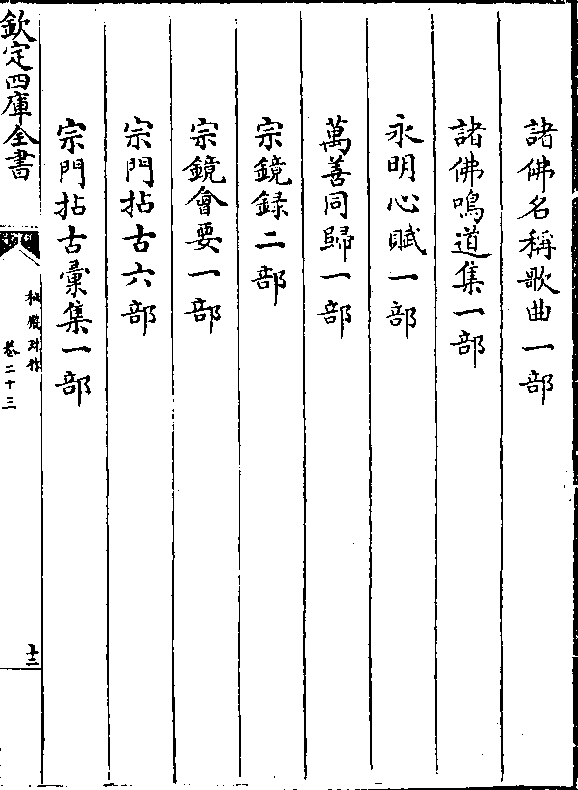 諸佛名稱歌曲一部
諸佛鳴道集一部
永明心賦一部
萬善同歸一部
宗鏡録二部
宗鏡會要一部
宗門拈古六部
宗門拈古彚集一部
欽定四庫全書
秘殿珠林
卷二十三
十三